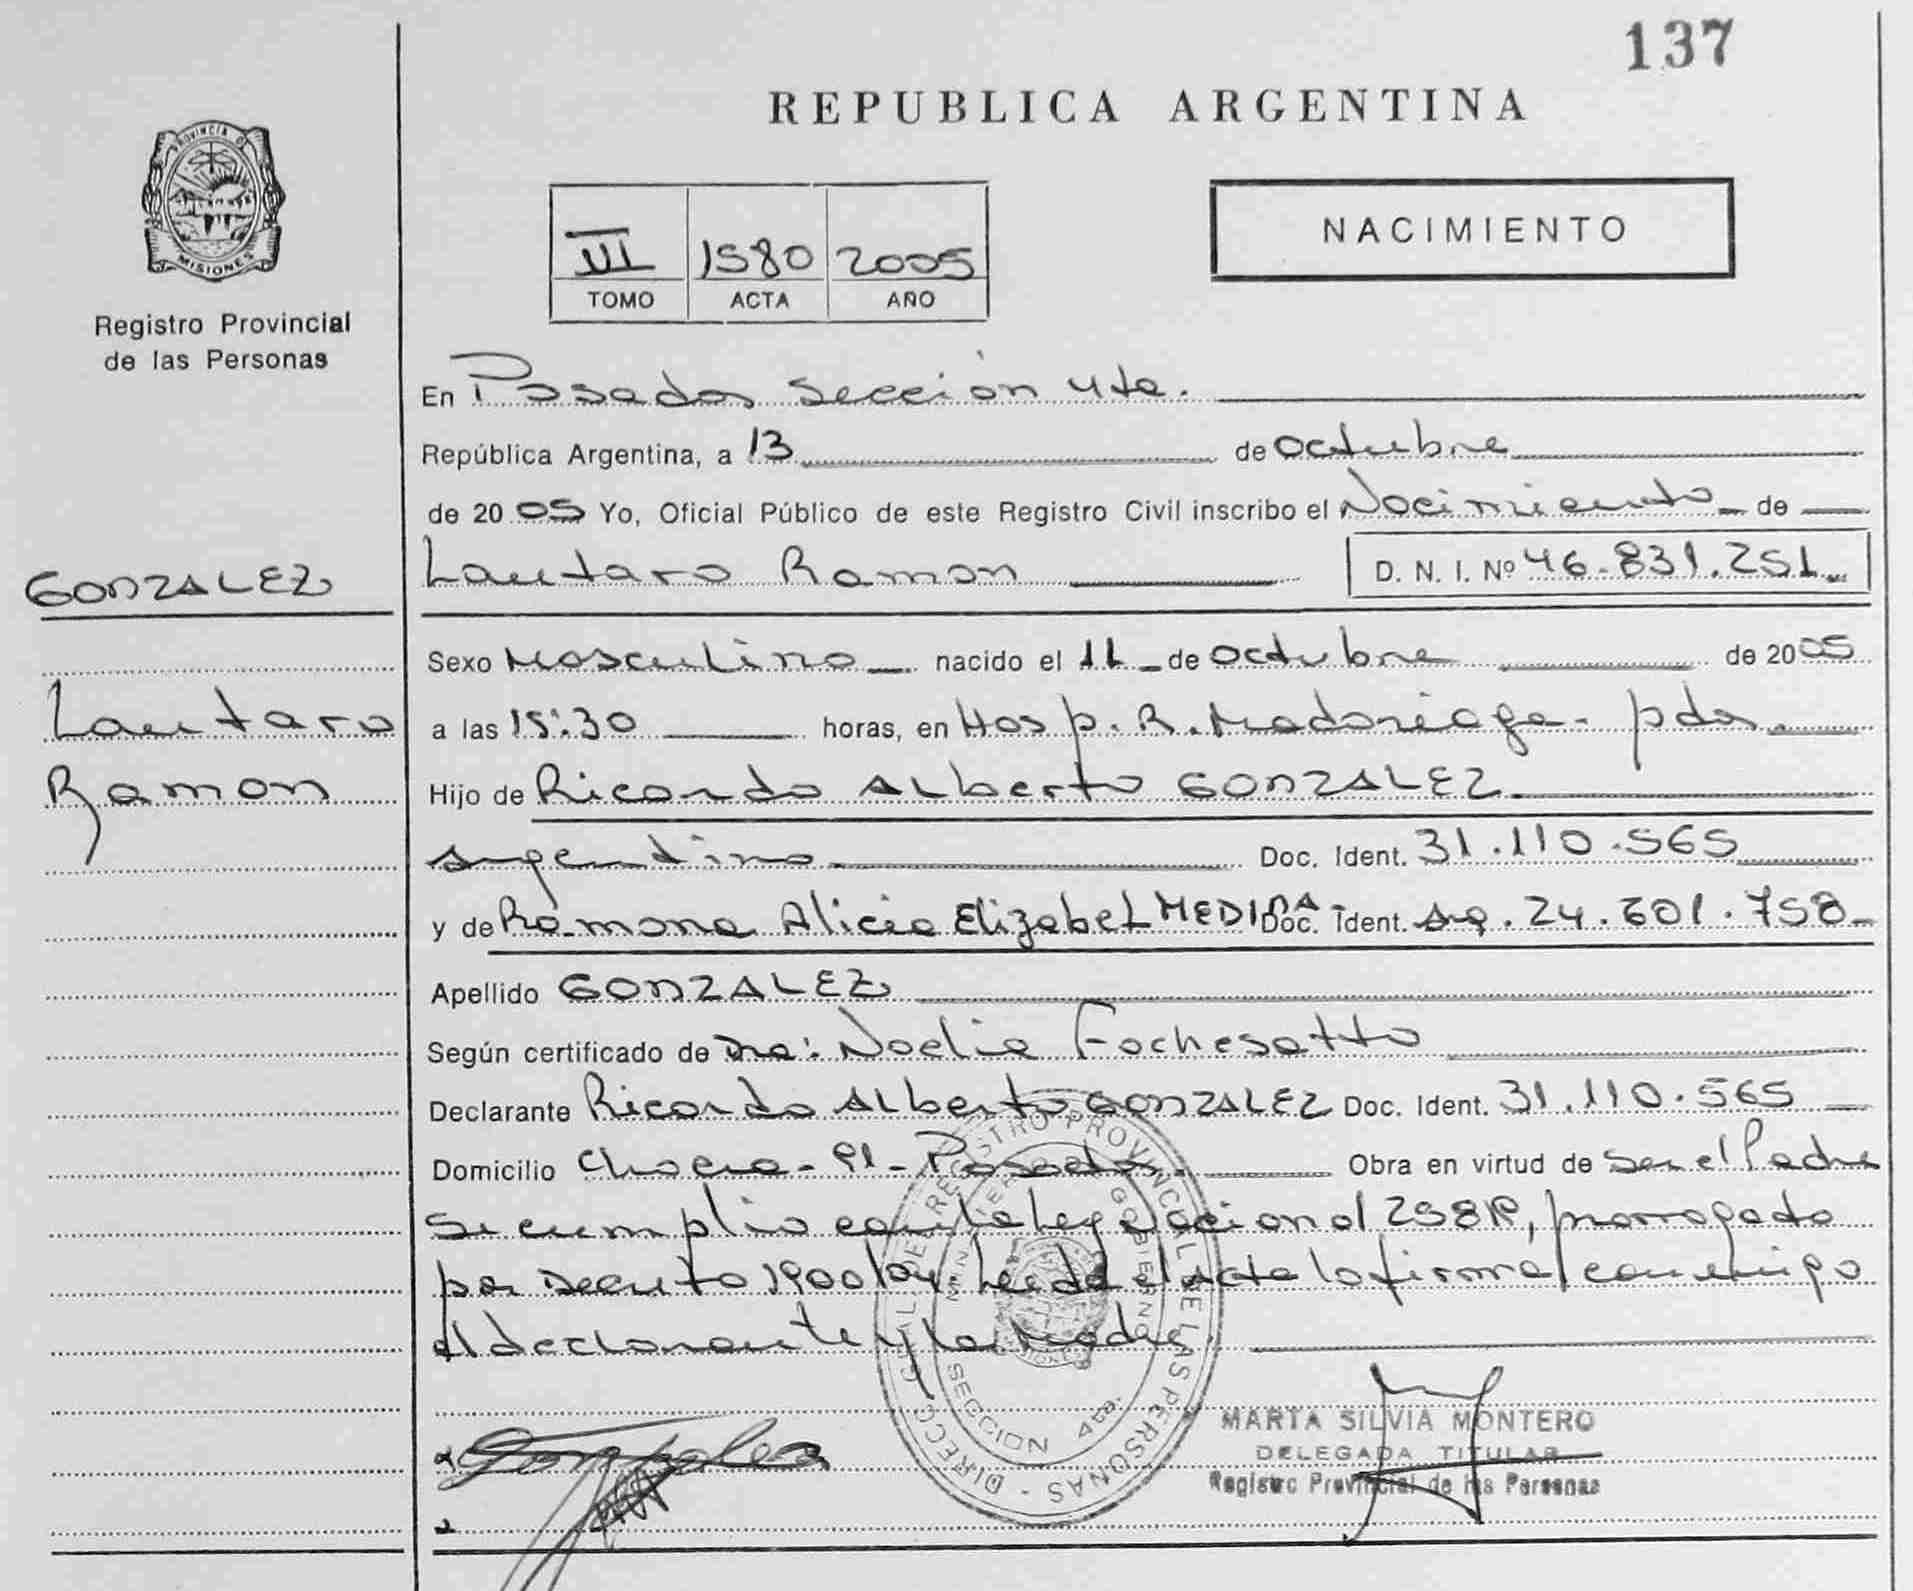 137
REPUBLICA ARGENTINA
PROVINCIA D
MISIONES
Registro Provincial
de las Personas
III 1580 2005
TOMO ACTA AÑO
NACIMIENTO
En Posadas sección 4ta.
República Argentina, a 13 de octubre
de 2005 Yo, Oficial Público de este Registro Civil inscribo el Nacimiento de
GONZALEZ
Lautaro Ramon
D. N. I. Nº 46.831.251
Lautaro
Ramon
Sexo Masculino nacido el 11 de octubre de 2005
a las 15:30 horas, en Hosp. R. Madariaga - pdas.
Hijo de Ricardo Alberto GONZALEZ
argentino Doc. Ident. 31.110.565
y de Ramona Alicia Elizabet MEDINA Doc. Ident. Arg. 24.601.758
Apellido GONZALEZ
Según certificado de Dra: Noelia Fochesatto
Declarante Ricardo Alberto GONZALEZ Doc. Ident. 31.110.565
Domicilio Chacra - 91 - Posadas. Obra en virtud de ser el Padre
Se cumplio con la Ley Nacional 25819, prorrogada
por Decreto 1900/04 Leida el acta la firma conmigo
el declarante y la Madre
DIRECC CIVIL DEL REGISTRO PROVINCIAL DE LAS PERSONAS
GOBIERNO
SECCION 4ta.
Gonzalez
MARTA SILVIA MONTERO
DELEGADA TITULAR
Registro Provincial de las Personas